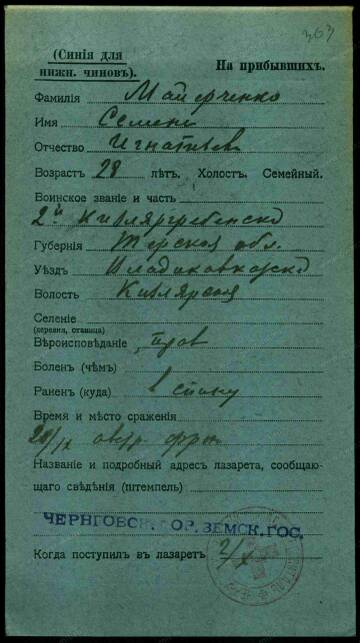 363
(Синія для
нижн. чиновъ).
На прибывшихъ.
Фамилія Майерченко
Имя Семенъ
Отчество Игнатьев
Возрастъ 28 лѣтъ. Холост. Семейный.
Воинское званіе и часть
2й Кизляргребенско
Губернія Терская обл.
Уѣздъ Владикавказско
Волость Кизлярская
Селеніе
(деревня, станица)
Вѣроисповѣданіе прав
Болен (чѣм)
Ранен (куда) в спину
Время и мѣсто сраженія
28/IX австр. фрон
Названіе и подробный адрес лазарета, сообщаю-
щаго свѣдѣнія (штемпель)
ЧЕРНГОВСК. ГОР. ЗЕМСК. ГОС.
Когда поступил въ лазарет 2/X